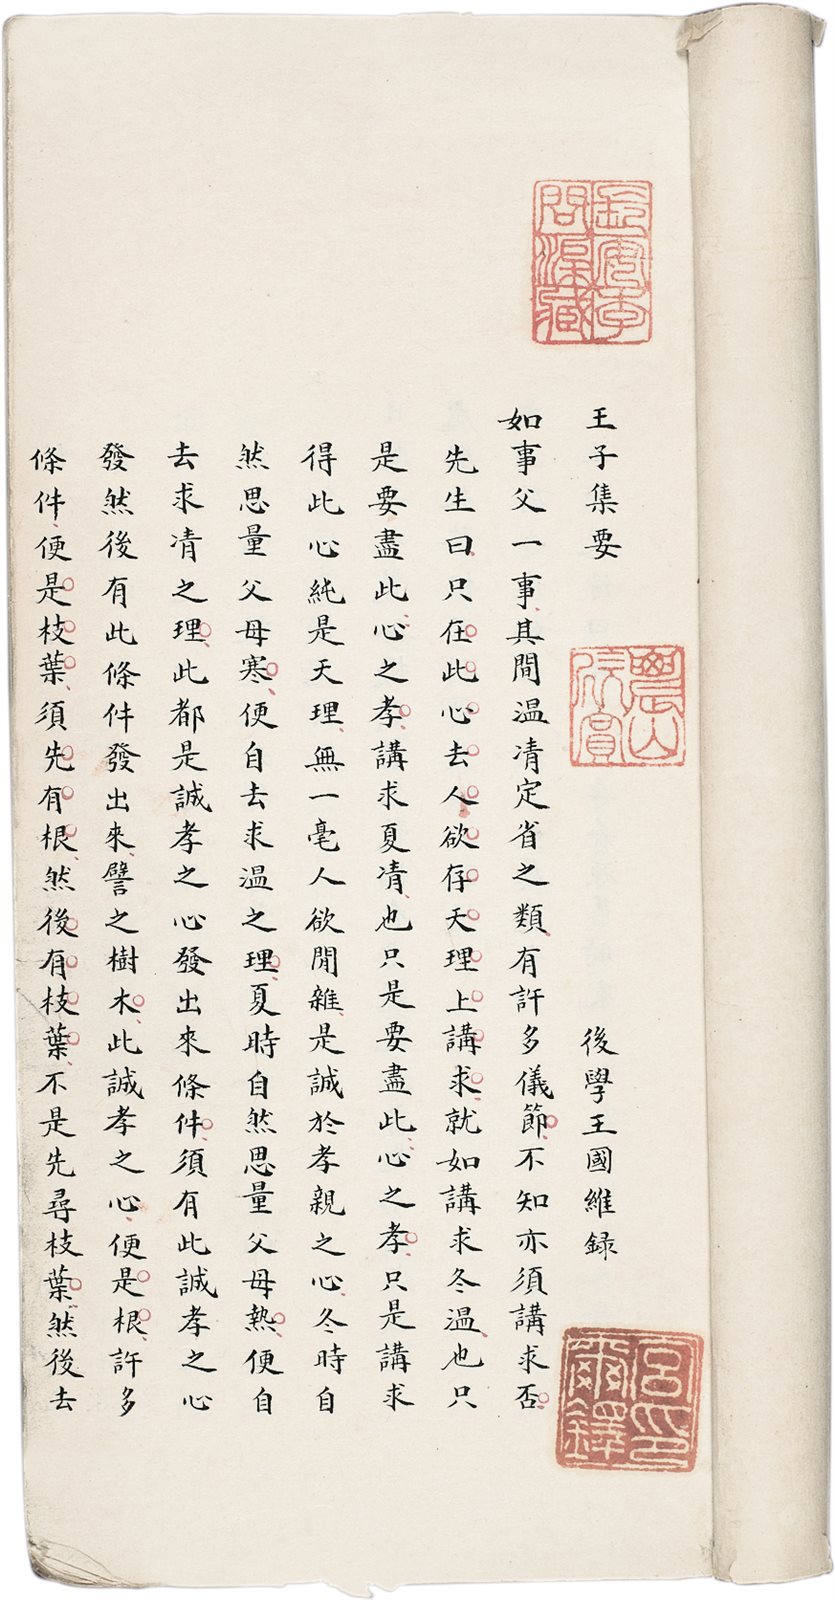 王子集要 後學王國維録
如事父一事其閒温凊定省之類有許多儀節不知亦須講求否
先生曰只在此心去人欲存天理上講求就如講求冬温也只
是要盡此心之孝講求夏凊也只是要盡此心之孝只是講求
得此心純是天理無一毫人欲閒雜是誠於孝親之心冬時自
然思量父母寒便自去求温之理夏時自然思量父母熱便自
去求凊之理此都是誠孝之心發出來條件須有此誠孝之心
發然後有此條件發出來譬之樹木此誠孝之心便是根許多
條件便是枝葉須先有根然後有枝葉不是先尋枝葉然後去
農山欣賞
宮印爾鐸